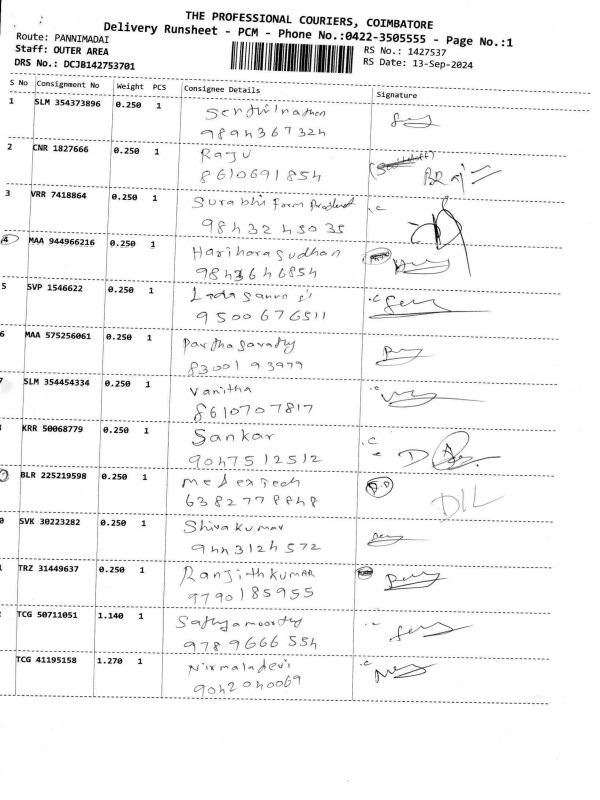 THE PROFESSIONAL COURIERS, COIMBATORE
Delivery Runsheet - PCM - Phone No.:0422-3505555 - Page No.:1
Route: PANNIMADAI
Staff: OUTER AREA
RS No.: 1427537
DRS No.: DCJB142753701
RS Date: 13-Sep-2024
S No Consignment No Weight PCS Consignee Details Signature
1 SLM 354373896 0.250 1 Senthilnathan
9894367324
2 CNR 1827666 0.250 1 Raju
8610691854
3 VRR 7418864 0.250 1 Surabhi Farm Product
9843245035
4 MAA 944966216 0.250 1 Hariharasudhan
9843646854
5 SVP 1546622 0.250 1
9500676511
6 MAA 575256061 0.250 1 Parthasarathy
8300193979
7 SLM 354454334 0.250 1 Vanitha
8610707817
KRR 50068779 0.250 1 Sankar
9047512512
BLR 225219598 0.250 1 medextech
6382778848 DIL
0 SVK 30223282 0.250 1 Shivakumar
9443124572
1 TRZ 31449637 0.250 1 RanjithKUMAR
9790185955
TCG 50711051 1.140 1 Sathyamoorthy
9789666554
TCG 41195158 1.270 1 Nirmaladevi
9042040069